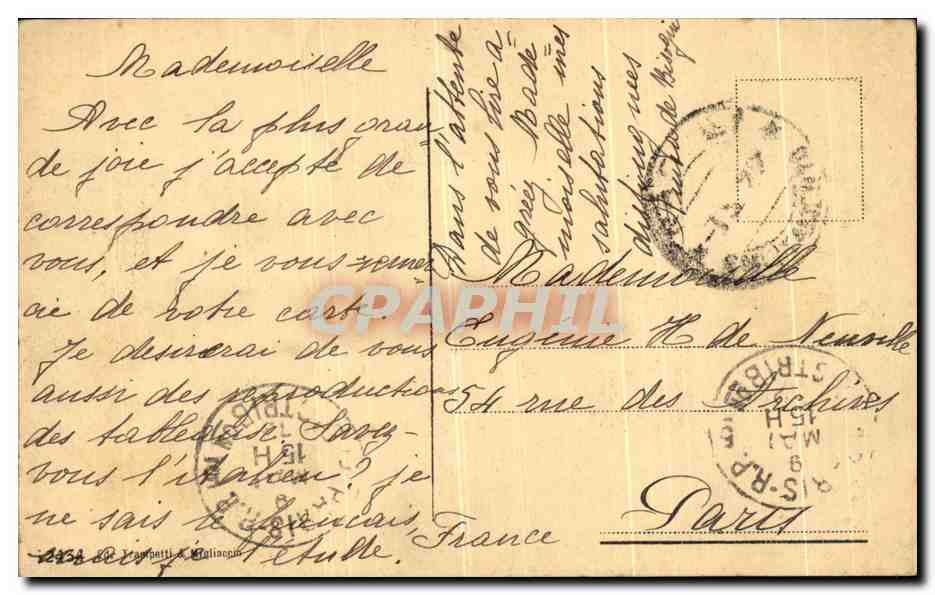 Mademoiselle
Avec la plus gran-
de joie j'accepte de
correspondre avec
vous, et je vous remer-
cie de votre carte.
Je desirerai de vous
aussi des reproductions
des tableaux. Savez-
vous l'italien? je
ne sais le français
mais je l'étude.
Dans l'attente
de vous lire à
gréez Made=
moiselle mes
salutations
distinguées
Mademoiselle
Eugénie H de Neuville
54 rue des Archives
Paris
France
2434 Trampetti & Migliaccio
CPAPHIL
PARIS R.P.
DISTRIBUTION
15 H
9
MAI
15 H
9